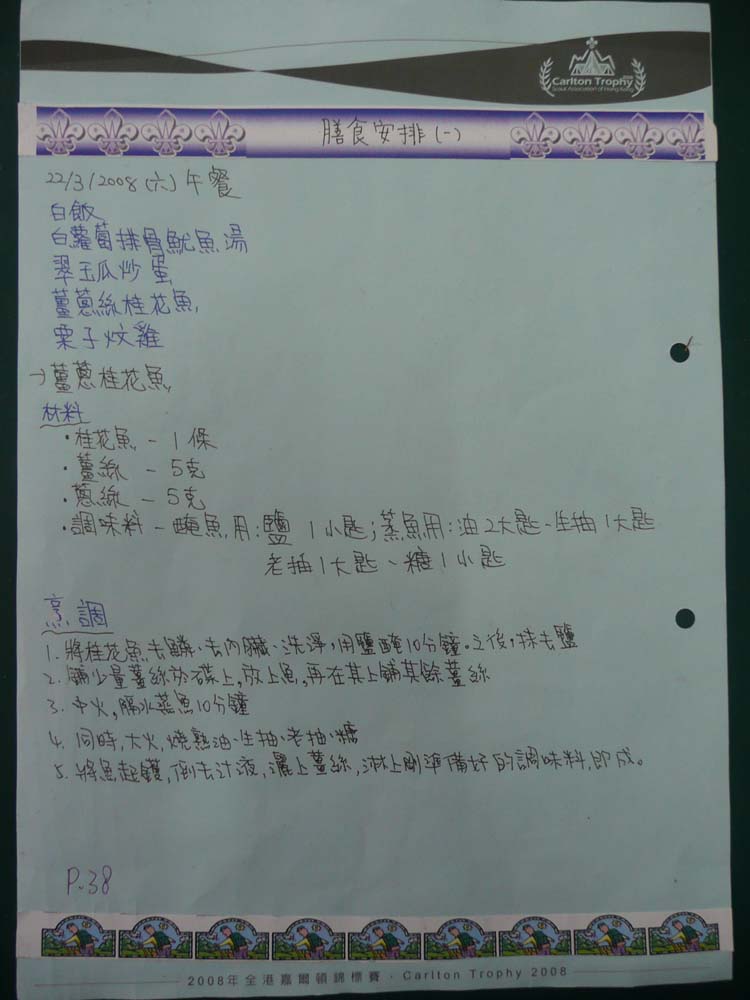 Carlton Trophy
Scout Association of Hong Kong
膳食安排(一)
22/3/2008 (六) 午餐
白飯
白蘿蔔排骨魷魚湯
翠玉瓜炒蛋
薑蔥絲桂花魚
栗子炆雞
→薑蔥桂花魚
材料
·桂花魚 - 1條
·薑絲 - 5克
·蔥絲 - 5克
·調味料 - 醃魚用:鹽 1小匙;蒸魚用:油2大匙、生抽1大匙
老抽1大匙、糖1小匙
烹調
1. 將桂花魚去鱗、去內臟、洗淨,用鹽醃10分鐘。之後,抹去鹽
2. 舖少量薑絲於碟上,放上魚,再在其上舖其餘薑絲
3. 中火,隔水蒸魚10分鐘
4. 同時,大火,燒熟油、生抽、老抽、糖
5. 將魚起鑊,倒去汁液,灑上薑絲,淋上剛準備好的調味料,即成。
P.38
2008年全港嘉爾頓錦標賽 · Carlton Trophy 2008